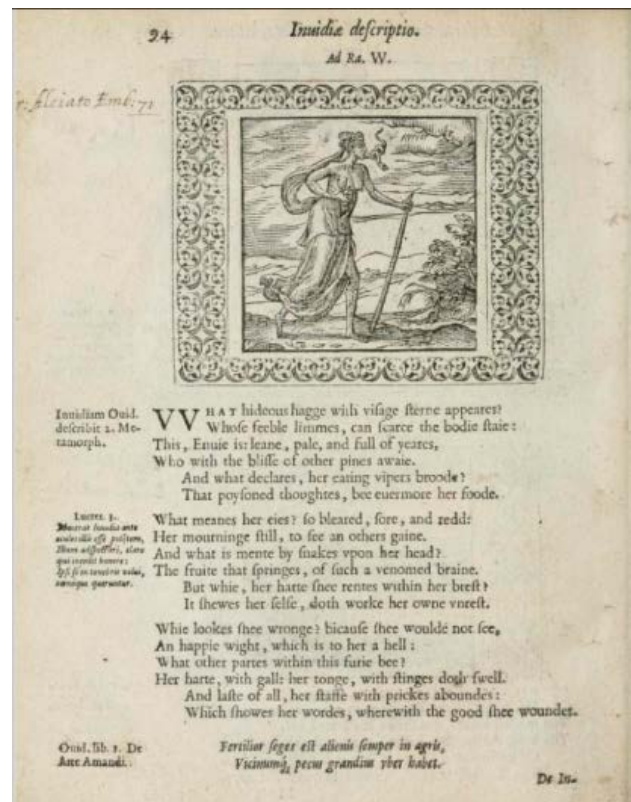 94
Inuidiæ descriptio.
Ad Ra. W.
Alciato Emb: 71
Inuidiam Ouid.
describit 2. Me-
tamorph.
VVHAT hideous hagge with visage sterne appeares?
Whose feeble limmes, can scarce the bodie staie:
This, Enuie is: leane, pale, and full of yeares,
Who with the blisse of other pines awaie.
And what declares, her eating vipers broode?
That poysoned thoughtes, bee euermore her foode.
Lucret. 3.
Macerat inuidia ante
oculos illũ esse potentem,
Illum adspectari, claro
qui incedit honore:
Ipsi se in tenebris volui,
cœnoque queruntur.
What meanes her eies? so bleared, sore, and redd:
Her mourninge still, to see an others gaine.
And what is mente by snakes vpon her head?
The fruite that springes, of such a venomed braine.
But whie, her harte shee rentes within her brest?
It shewes her selfe, doth worke her owne vnrest.
Whie lookes shee wronge? bicause shee woulde not see,
An happie wight, which is to her a hell:
What other partes within this furie bee?
Her harte, with gall: her tonge, with stinges doth swell.
And laste of all, her staffe with prickes aboundes:
Which showes her wordes, wherewith the good shee woundes.
Ouid. lib. 1. De
Arte Amandi.
Fertilior seges est alienis semper in agris,
Vicinumq́, pecus grandius vber habet.
De In-